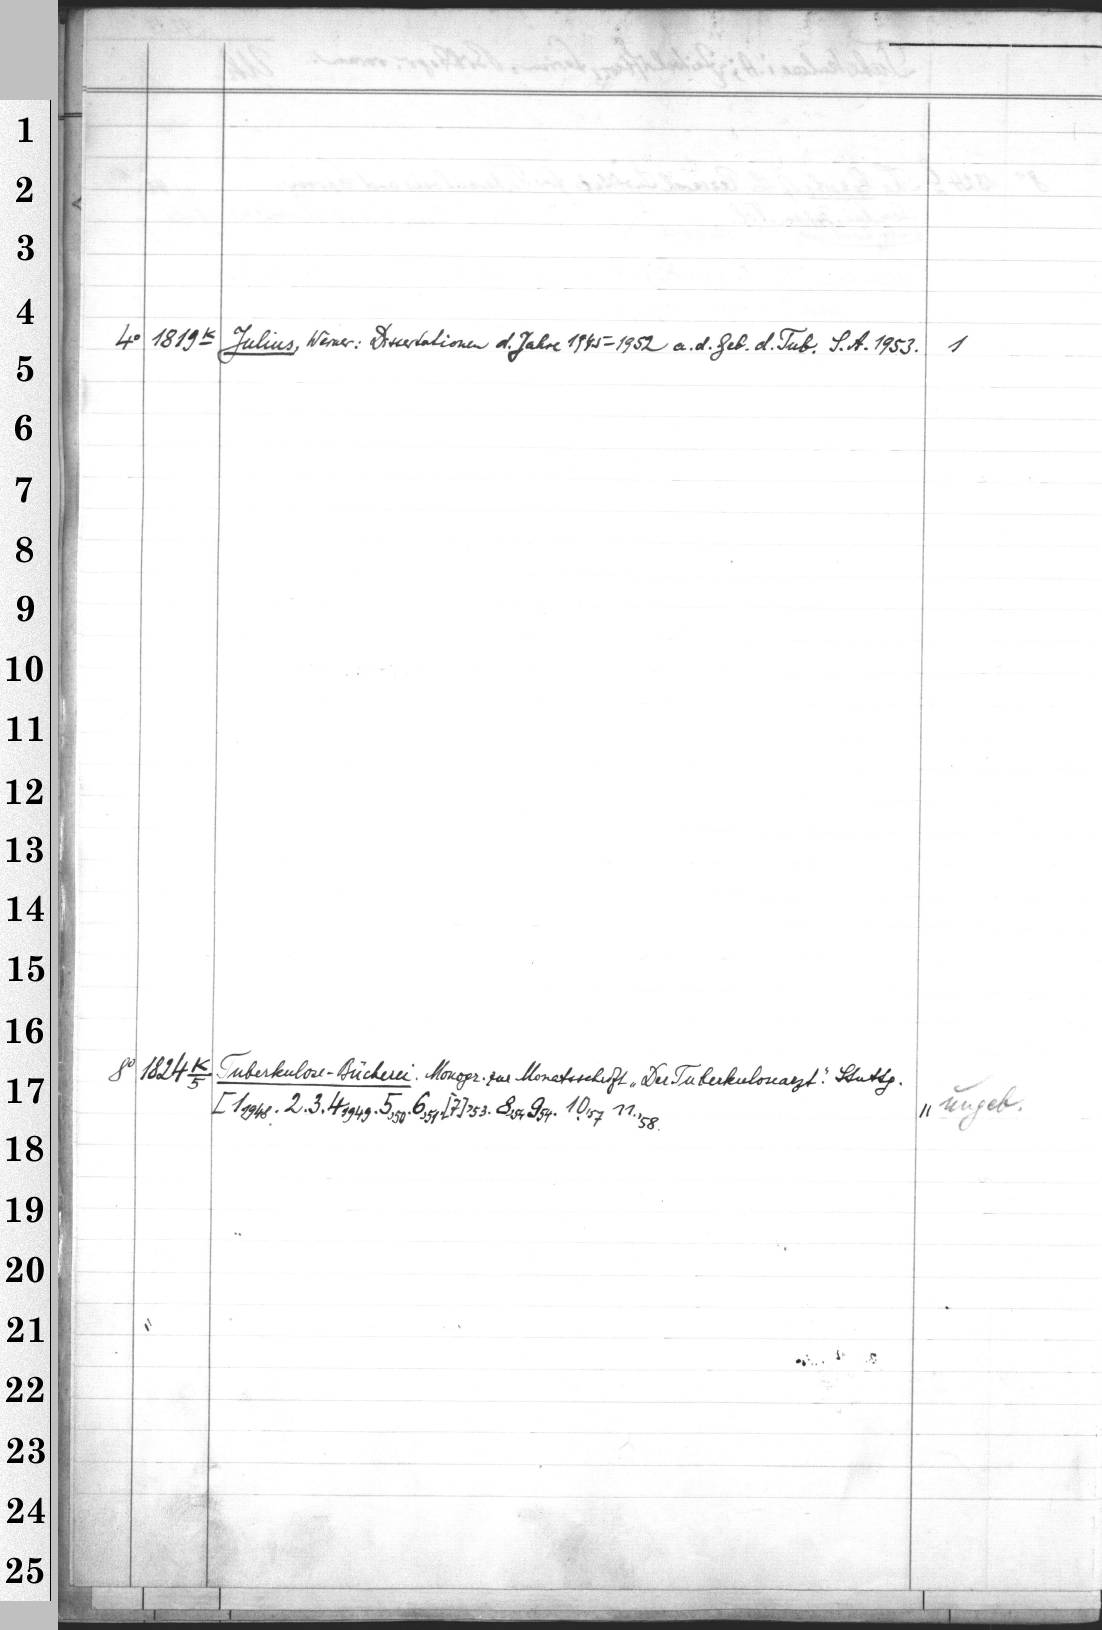 1
2
3
4
4° 1819 K Julius, Werner: Dissertationen d. Jahre 1945-1952 a. d. Geb. d. Tub. S. A. 1953. 1
5
6
7
8
9
10
11
12
13
14
15
16
8° 1824 K/5 Tuberkulose-Bücherei. Monogr. zur Monatsschrift „Der Tuberkulosearzt“. Stuttg.
17
[1 1948. 2. 3. 4 1949. 5,50. 6,51. [7] 53. 8,54. 9 54. 10,57 11,58. " ungeb.
18
19
20
21
22
23
24
25